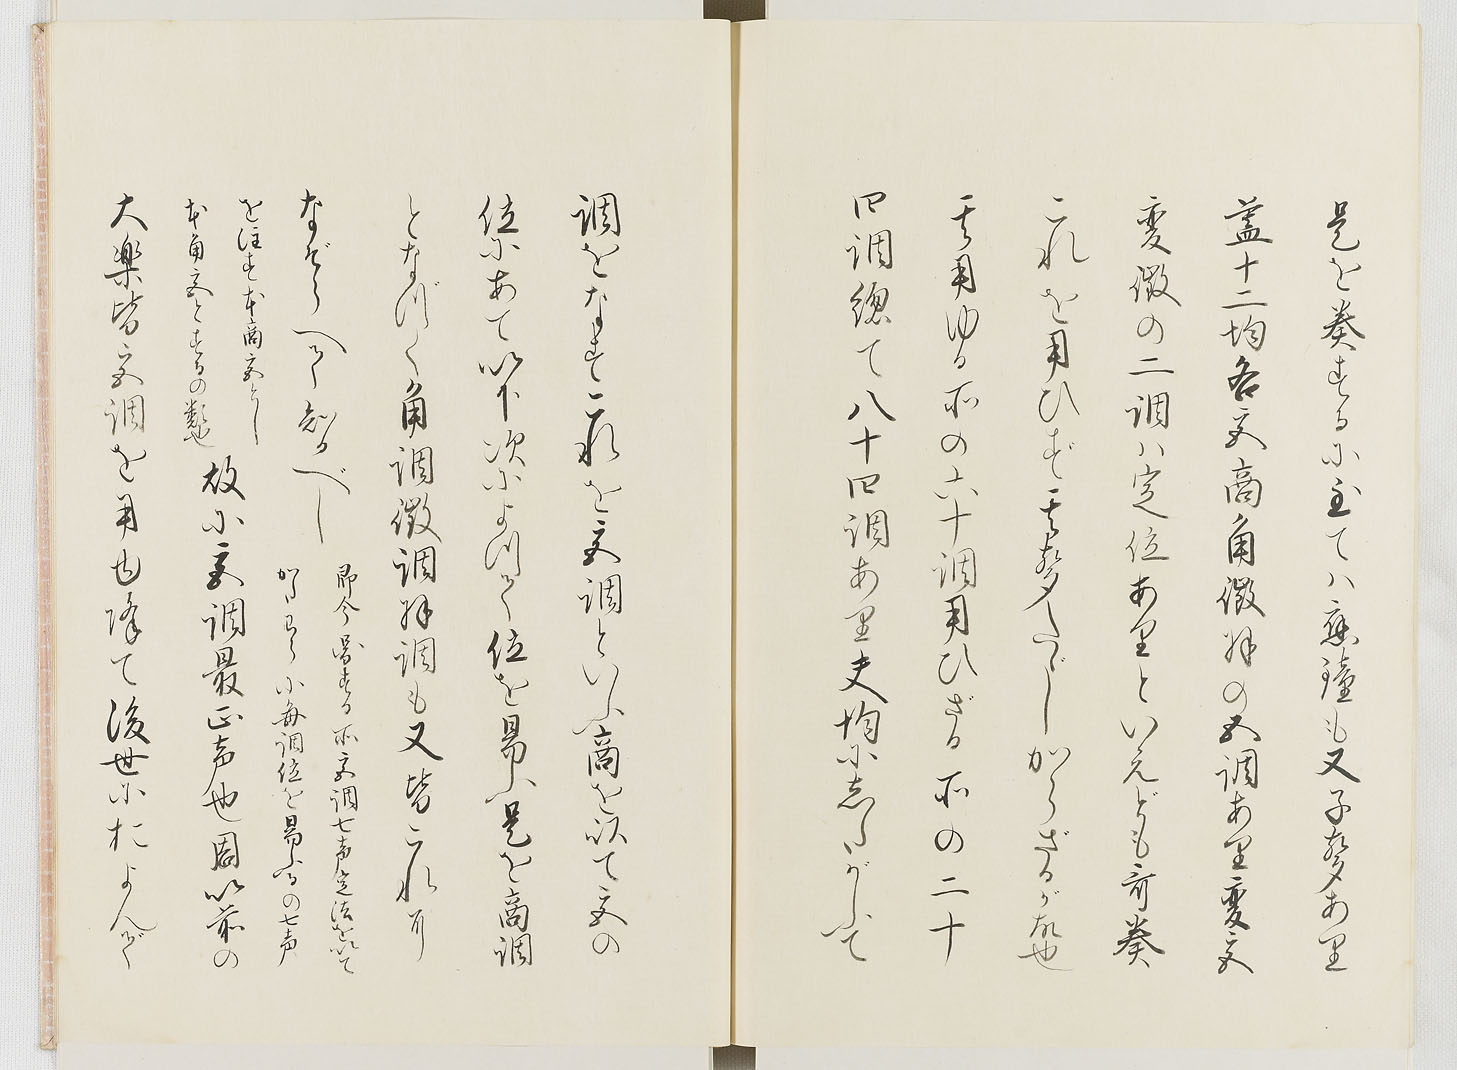 是を奏するに至ては應鐘も又子聲あり
蓋十二均各宮商角徴羽の五調あり変宮
変徴の二調は定位ありといえども奇奏
これを用ひず其聲たゞしからざるが故也
其用ゆる所の六十調用ひざる所の二十
四調總て八十四調あり夫均にしたがふて
調をなすこれを宮調といふ商を以て宮の
位にあて以下次によつて位を易ふ是を商調
となづく角調徴調羽調も又皆これに
なぞらへて知るべし
即今為する所宮調七声定法を以て
かたはらに毎調位を易ふるの七声
を注す本商宮とし
本角宮とするの類也
故に宮調最正声也周以前の
大樂皆宮調を用也降て後世におよんで